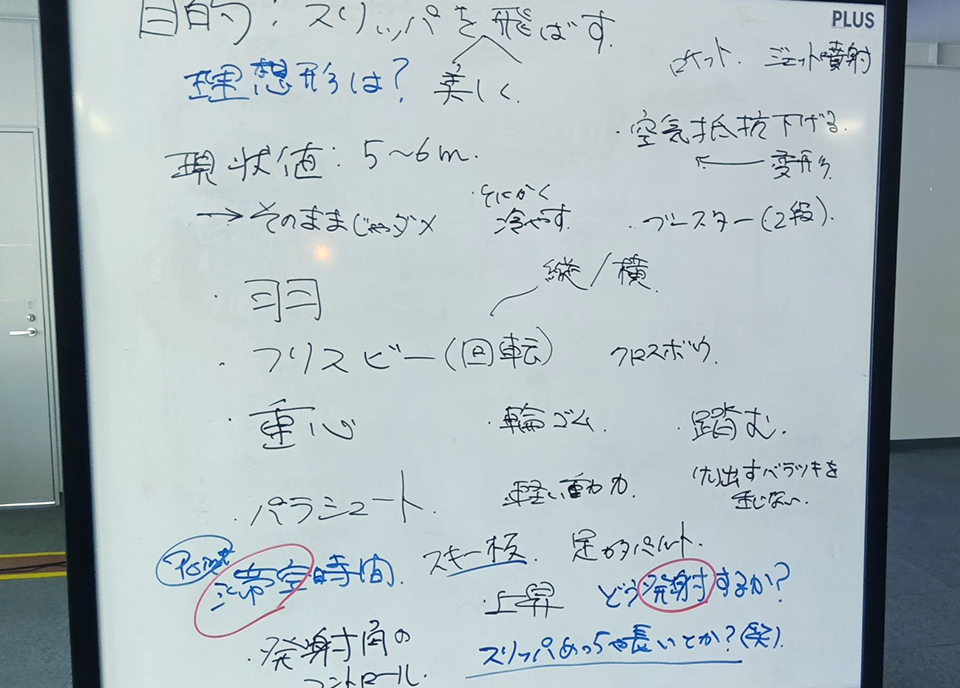 PLUS
目的：スリッパを飛ばす
ロケット. ジェット噴射
理想形は？ 美しく.
・空気抵抗下げる.
← 変形.
現状値：5～6m.
→そのままじゃダメ
・とにかく
冷やす.
・ブースター(2段).
縦/横
・羽
・フリスビー(回転)
クロスボウ
・重心
輪ゴム.
踏む.
・パラシュート
軽い動力
け出すベラツキを
生じない.
Point
滞空時間.
スキー板.
足カタパルト.
・上昇
どう発射するか？
・発射角の
コントロール.
スリッパめっちゃ長いとか？(笑).